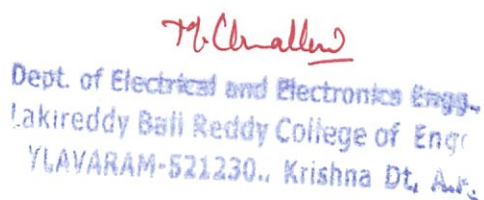 Dept. of Electrical and Electronics Engg.,
Lakireddy Bali Reddy College of Engg
YLAVARAM-521230., Krishna Dt, A.P.